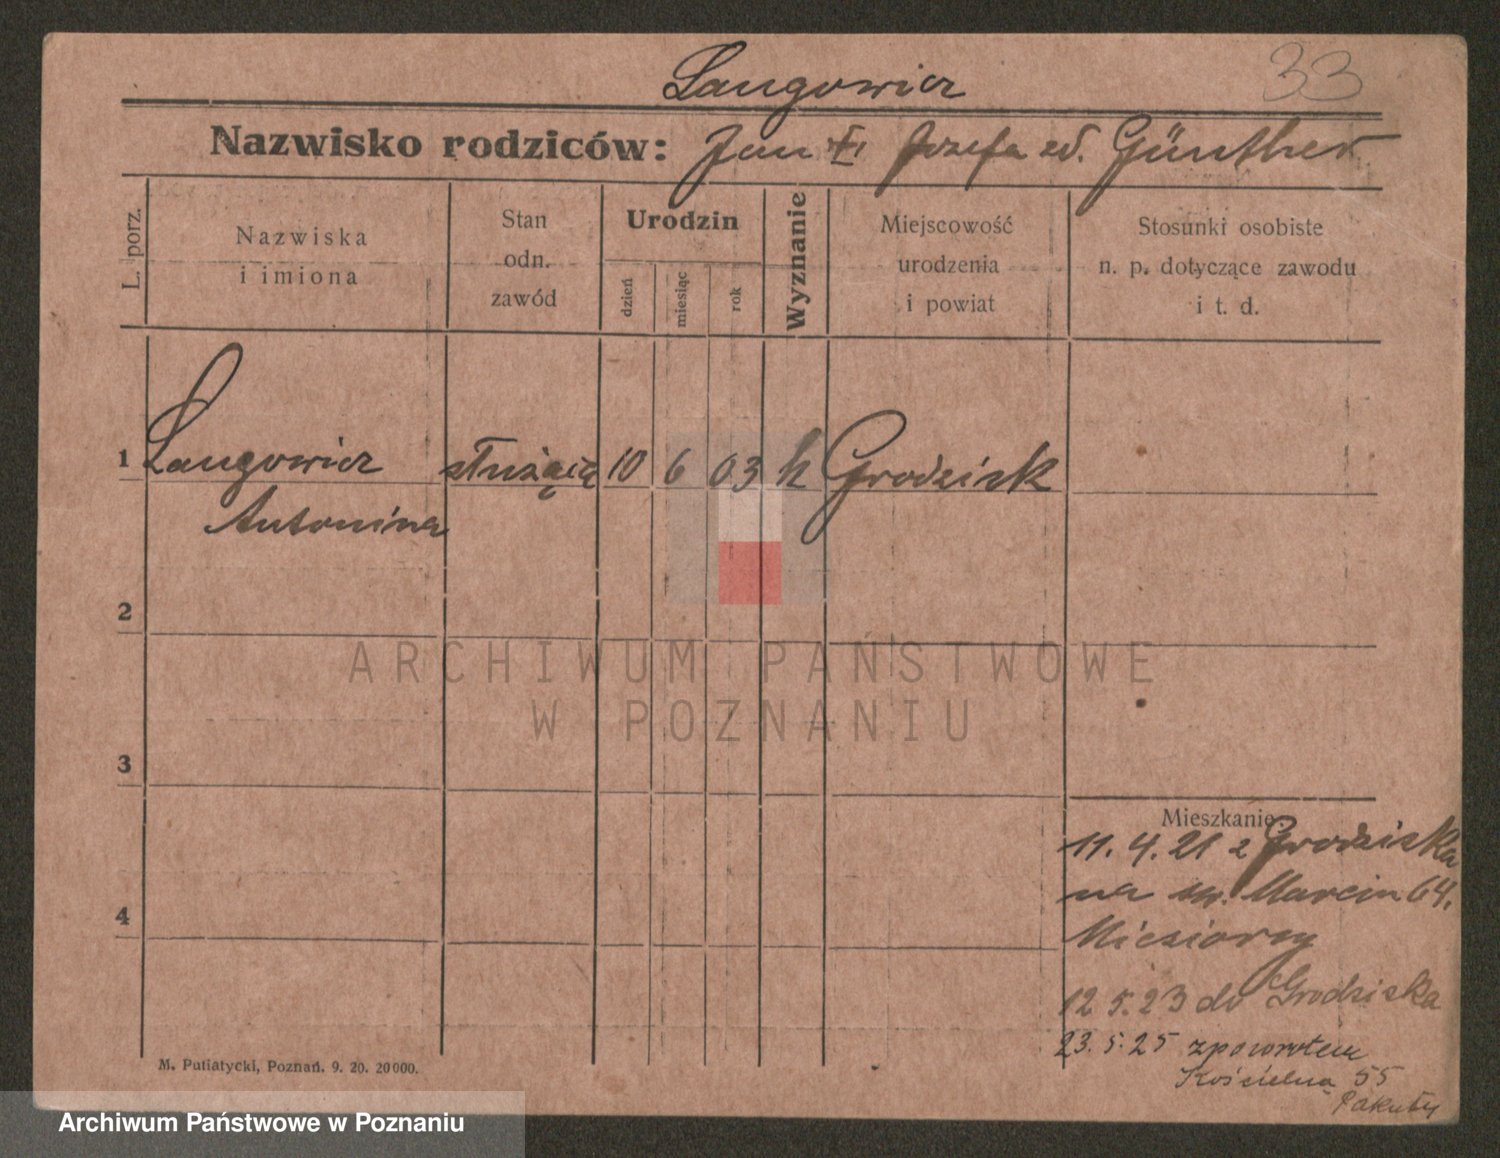 33
Langowicz
Nazwisko rodziców: Jan i Józefa zd. Günther
L. porz.
Nazwiska
i imiona
Stan
odn.
zawód
Urodzin
dzień
miesiąc
rok
Wyznanie
Miejscowość
urodzenia
i powiat
Stosunki osobiste
n. p. dotyczące zawodu
i t. d.
1 Langowicz służącą 10 6 03 k Grodzisk
Antonina
2
3
4
Mieszkanie:
11. 4. 21 z Grodziska
na św. Marcin 64.
12 5. 23 do Grodziska
23. 5. 25 zpowrotem
Kościelna 55
M. Putiatycki, Poznań. 9. 20. 20000.
ARCHIWUM PAŃSTWOWE
W POZNANIU
Archiwum Państwowe w Poznaniu